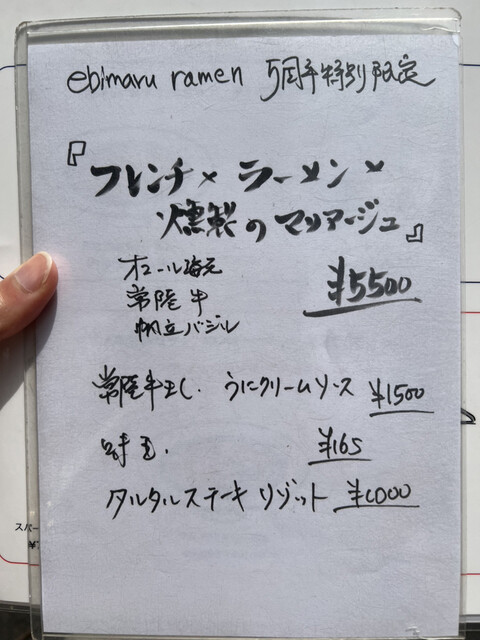 ebimaru ramen 5周年特別限定
『フレンチ×ラーメン×
燻製のマリアージュ』
オマール海老
常陸牛
帆立バジル
¥5500
常陸牛正し、うにクリームソース ¥1500
味玉、 ¥165
タルタルステーキリゾット ¥1000
スパー